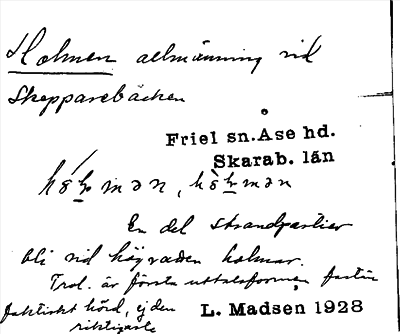 Holmen allmänning vid
Skepparebäcken
Friel sn. Åse hd.
Skarab. län
En del strandpartier
bli vid högvatten holmar.
Trol. är första uttalsformen, fastän
faktiskt hörd, ej den
riktigaste
L. Madsen 1928